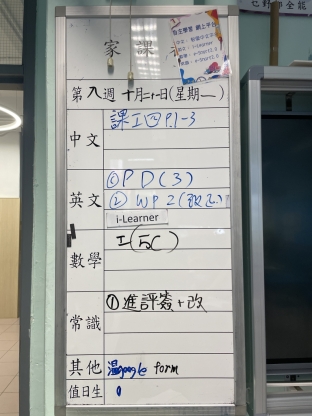 家課
自主學習 網上平台
第八週 十月二十一日(星期一)
中文
課工四 P.1-3
英文
① PD (3)
② WP 2 (改正)
i-Learner
數學
工(5C)
常識
① 進評簽+改
其他
溫google form
值日生